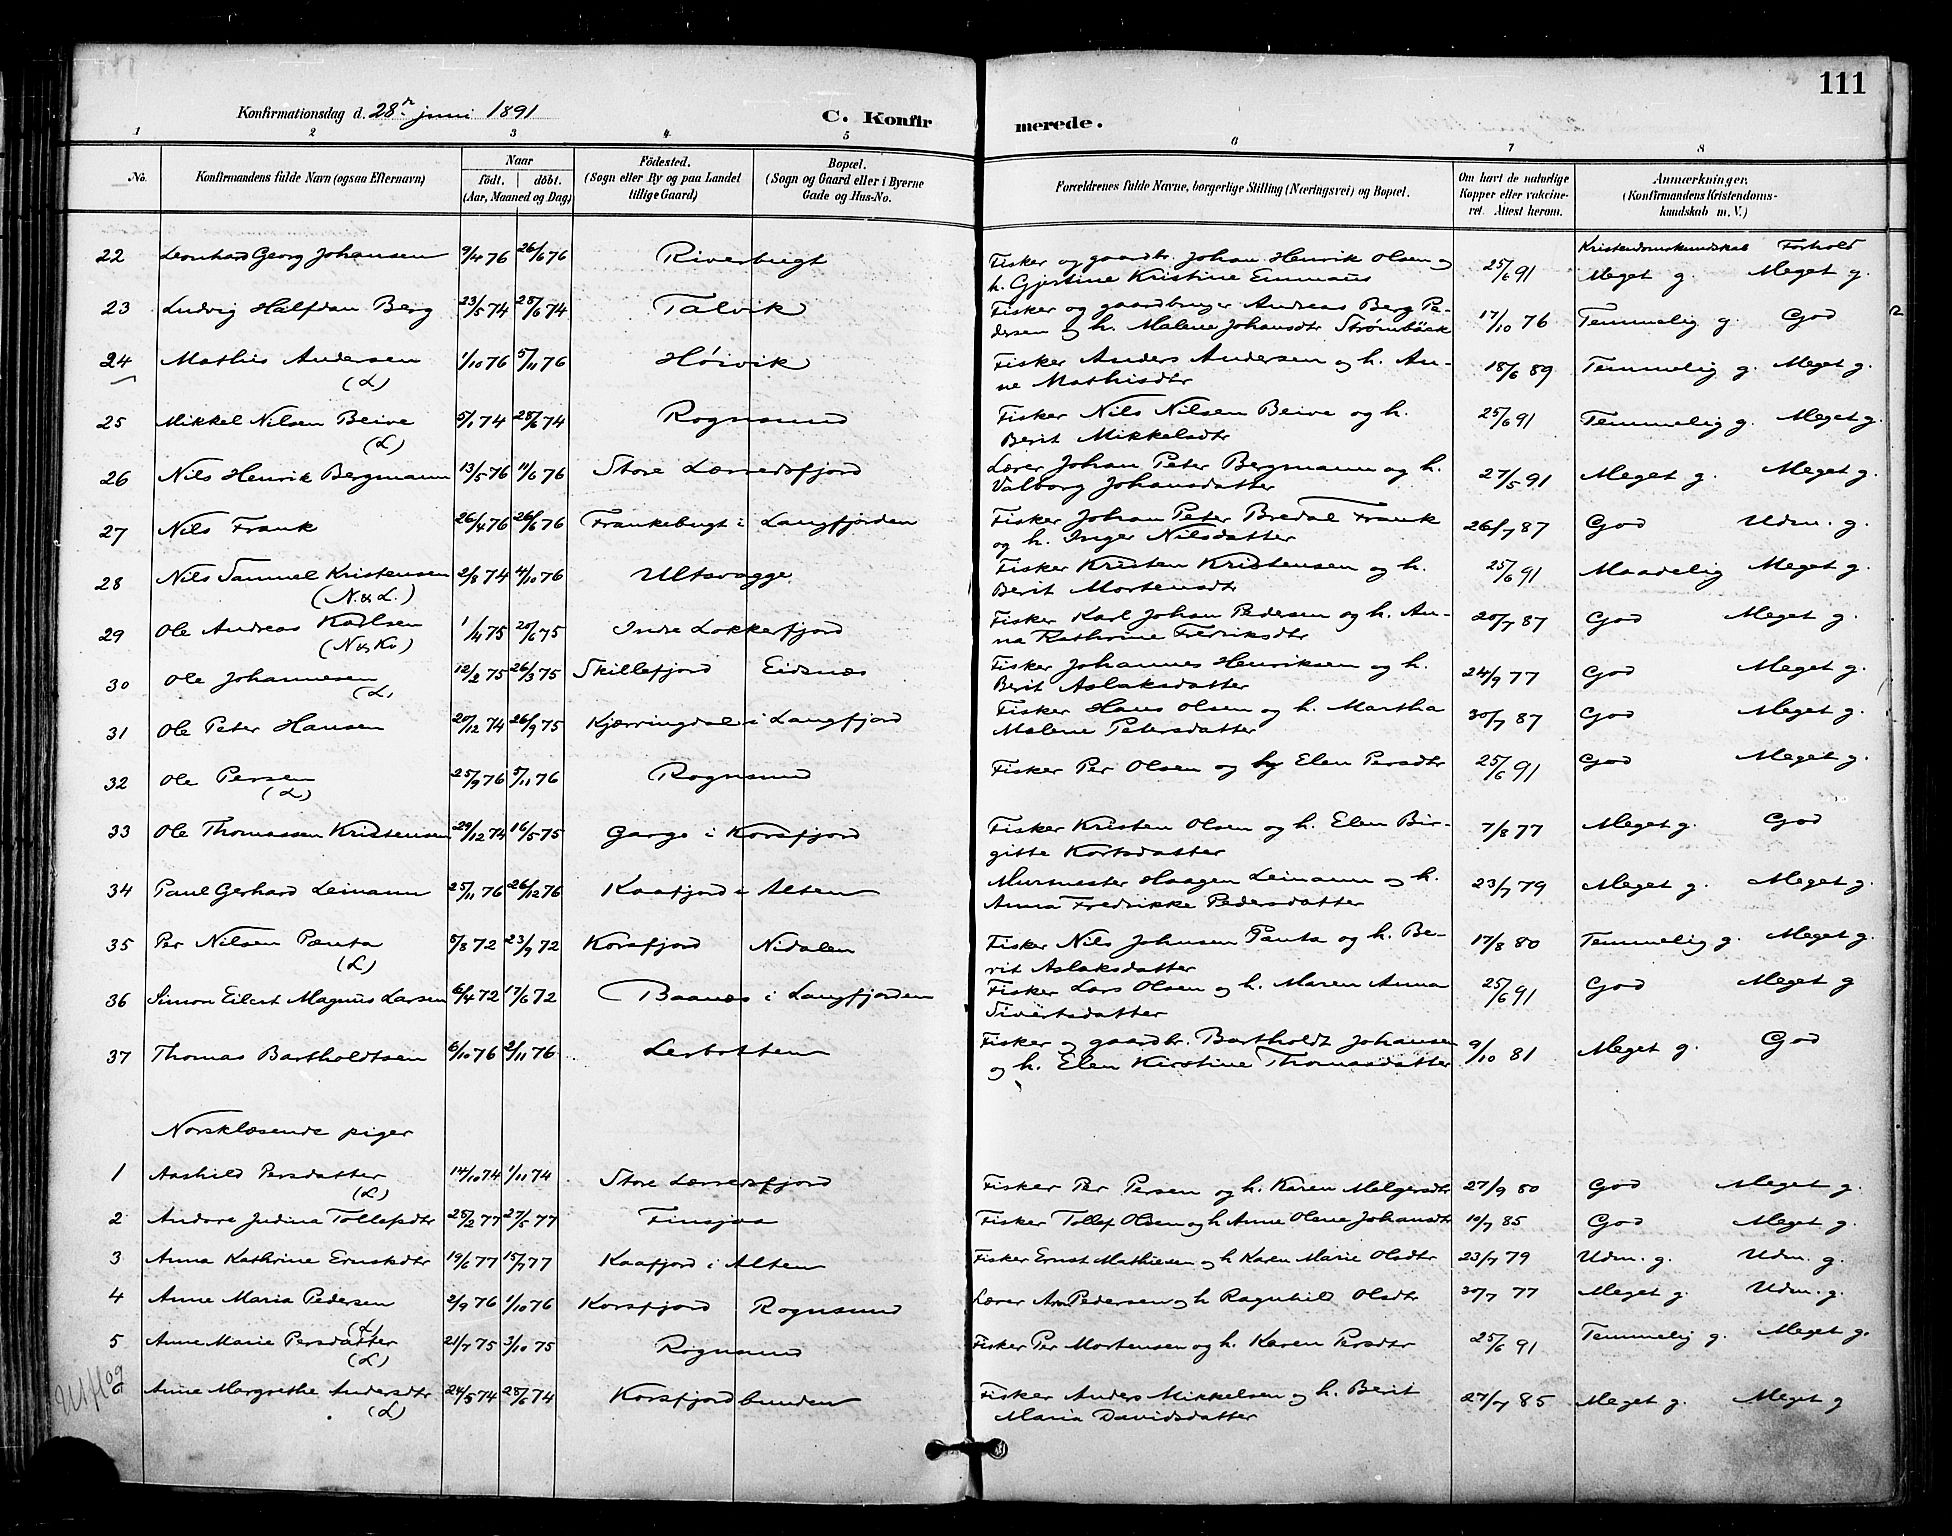 111
Konfirmationsdag d. 28de juni 1891 C. Konfirmerede.
1 2 3 4 5 6 7 8
No. Konfirmandens fulde Navn (ogsaa Efternavn) Naar födt. döbt. (Aar, Maaned og Dag) Födested. (Sogn eller By og paa Landet tillige Gaard) Bopæl. (Sogn og Gaard eller i Byerne Gade og Hus-No. Forældrenes fulde Navne, borgerlige Stilling (Næringsvei) og Bopæl. Om havt de naturlige Kopper eller vakcineret. Attest herom. Anmærkninger, (Konfirmandens Kristendomskundskab m. V.)
Kristendomskundskab Forhold
22 Leonhard Georg Johansen 9/4 76 26/6 76 Riverbugt Fisker og gaardbr. Johan Henrik Olsen og 25/6 91 Meget g. Meget g.
h. Gjertine Kristine Emmaus
23 Ludvig Halfdan Berg 23/5 74 28/6 74 Talvik Fisker og gaardbruger Andreas Berg Pe- 17/10 76 Temmelig g. God
dersen og h. Malene Johansdtr Strømbäck
24 Mathis Andersen 1/10 76 5/11 76 Höivik Fisker Anders Andersen og h. An- 18/6 89 Temmelig g. Meget g.
(L) ne Mathisdtr
25 Mikkel Nilsen Beive 5/1 74 28/6 74 Rognsund Fisker Nils Nilsen Beive og h. 25/6 91 Temmelig g. Meget g.
(L) Berit Mikkelsdtr
26 Nils Henrik Bergmann 13/5 76 11/6 76 Store Lerredsfjord Lærer Johan Peter Bergmann og h. 27/5 91 Meget g. Meget g.
Valborg Johansdatter
27 Nils Frank 26/4 76 26/6 76 Frankebugt i Langfjorden Fisker Johan Peter Bredal Frank 26/7 87 God Udm. g.
og h. Inger Nilsdatter
28 Nils Samuel Kristensen 2/8 74 4/10 76 Ultsvagge Fisker Kristen Kristensen og h. 25/6 91 Maadelig Meget g.
(N. & L.) Berit Mortensdtr
29 Ole Andreas Karlsen 1/4 75 20/6 75 Indre Lokkerfjord Fisker Karl Johan Pedersen og h. An- 20/7 87 God Meget g.
(N & Kv) na Kathrine Fedriksdtr
30 Ole Johannesen 12/2 75 26/3 75 Skillefjord Eidsnæs Fisker Johannes Henriksen og h. 24/9 77 God Meget g.
(L) Berit Aslaksdatter
31 Ole Peter Hansen 20/12 74 26/9 75 Kjærringdal i Langfjord Fisker Hans Olsen og h. Martha 30/7 87 God Meget g.
Malene Petersdatter
32 Ole Persen 25/9 76 5/11 76 Rognsund Fisker Per Olsen og hy Elen Persdtr 25/6 91 God Meget g.
(L)
33 Ole Thomassen Kristensen 29/12 74 16/5 75 Garge i Korsfjord Fisker Kristen Olsen og h. Elen Bir- 7/8 77 Meget g. God
gitte Kortsdatter
34 Paul Gerhard Leimann 25/11 76 26/12 76 Kaafjord i Alten Murmester Haagen Leimann og h. 23/7 79 Meget g. Meget g.
Anna Fredrikke Pedersdatter
35 Per Nilsen Pænta 5/8 72 23/9 72 Korsfjord Nidalen Fisker Nils Johnsen Panta og h. Be- 17/8 80 Temmelig g. Meget g.
(L) rit Aslaksdatter
36 Simon Eilert Magnus Larsen 6/4 72 17/6 72 Baanæs i Langfjorden Fisker Lars Olsen og h. Maren Anna 25/6 91 God Meget g
Sivertsdatter
37 Thomas Bartholdtsen 6/10 76 2/11 76 Lerbotten Fisker og gaardbr. Bartholdt Johansen 9/10 81 Meget g. God
og h. Elen Kirstine Thomasdatter
Norsklæsende piger
1 Aashild Persdatter 14/10 74 1/11 74 Store Lerredsfjord Fisker Per Persen og h. Karen Melgersdtr 27/9 80 God Meget g.
(L)
2 Andore Judine Tollefsdtr 28/2 77 27/5 77 Finsjaa Fisker Tollef Olsen og h Anne Olene Johansdtr 10/7 85 God Meget g.
3 Anna Kathrine Ernstsdtr 19/6 77 15/7 77 Kaafjord i Alten Fisker Ernst Mathiesen og h Karen Marie Olsdtr 23/7 79 Udm. g. Udm. g.
4 Anne Maria Pedersen 2/9 76 1/10 76 Korsfjord Rognsund Lærer Pedersen og h Ragnhild Olsdtr 30/7 77 Meget g. Udm. g.
(L)
5 Anne Marie Persdatter 21/7 75 3/10 75 Rognsund Fisker Per Mortensen og h. Karen Persdtr 25/6 91 Temmelig g. Meget g.
(L)
6 Anne Margrethe Andersdtr 24/5 74 28/6 74 Korsfjordbunden Fisker Anders Mikkelsen og h. Berit 27/7 85 Meget g. Meget g
(L) Maria Davidsdatter